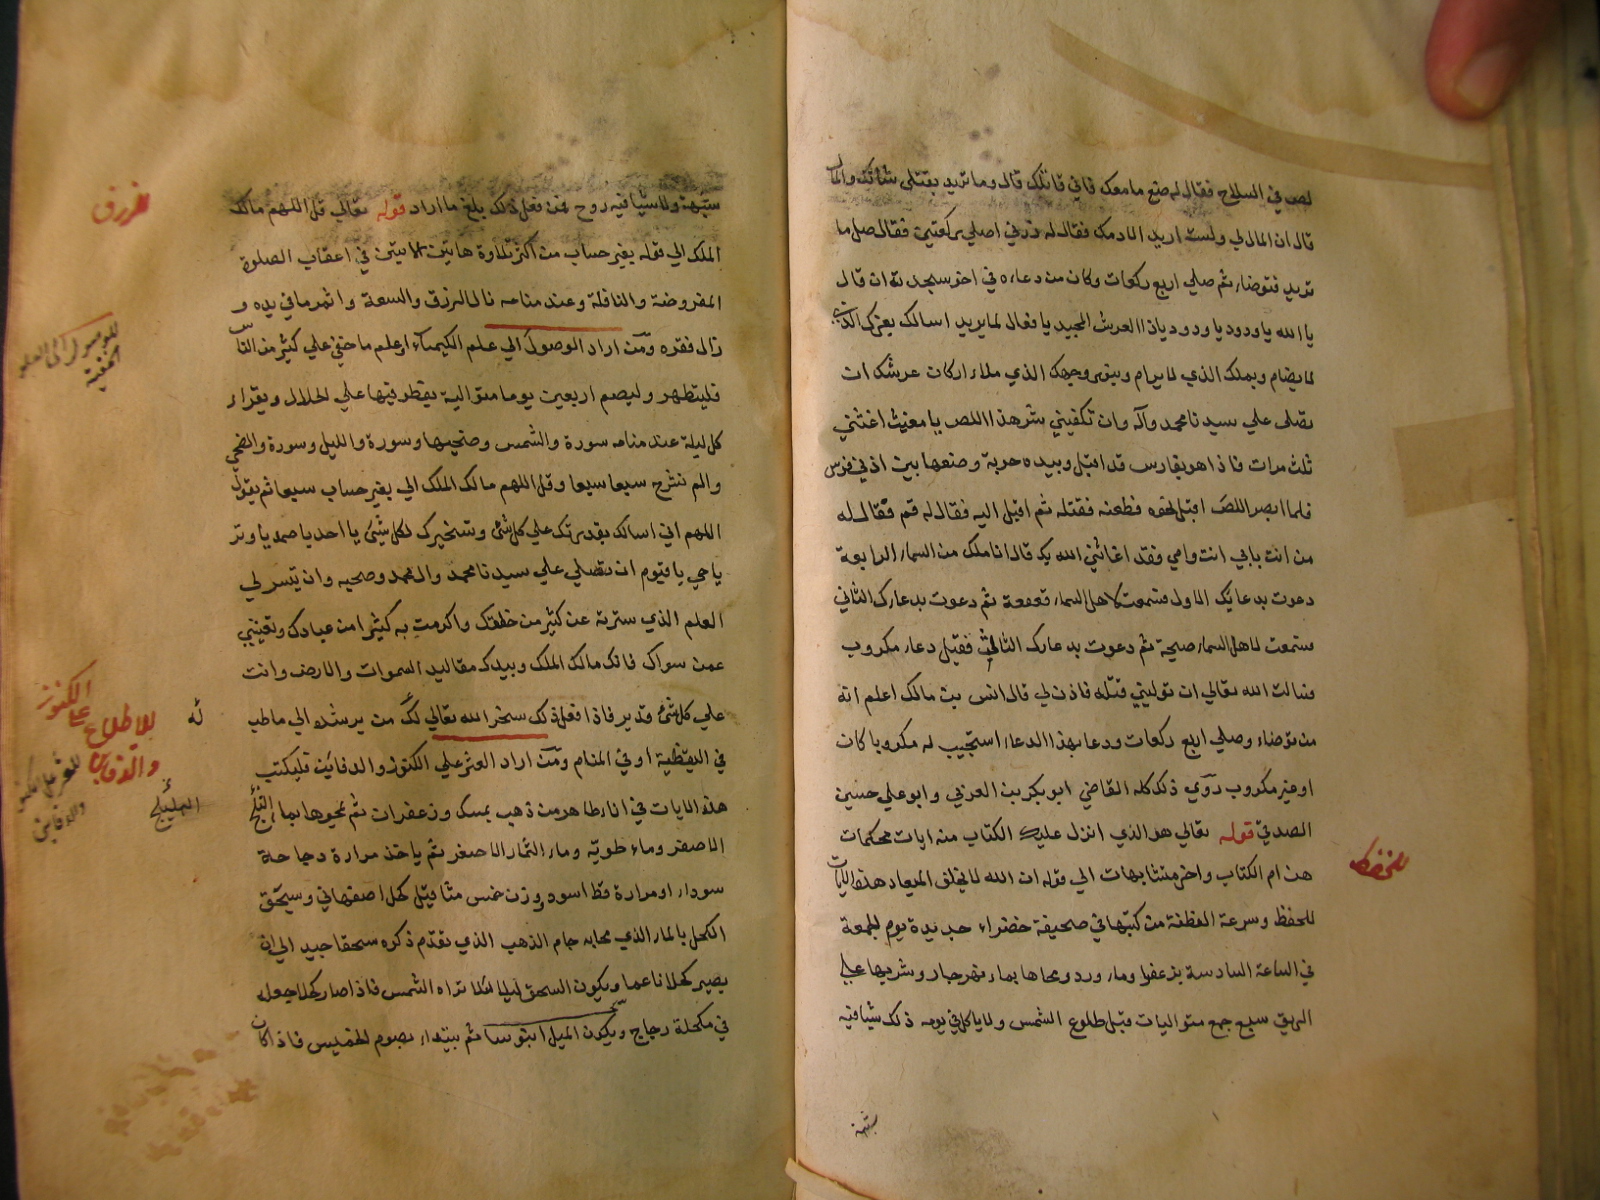 لص في السلاح فقال له ضع ما معك فاني قاتلك قال وما تريد بقتلي شانك والمال
قال ان المال لي ولست اريد الا دمك فقال له ذرني اصلي ركعتين فقال صل ما
تريد فتوضاء ثم صلي اربع ركعات وكان من دعاءه في اخر سجدته ان قال
يا الله يا ودود يا ودود يا ذا العرش المجيد يا فعال لما يريد اسالك بعزك الذي
لا يضام وبملك الذي لا يرام وبنور وجهك الذي ملاء اركان عرشك ان
تصلى علي سيدنا محمد وآله وان تكفيني شر هذا اللص يا مغيث اغثني
ثلث مرات فاذا هو بفارس قد اقبل وبيده حربة وضعها بين اذني فرس
فلما ابصر اللص اقبل نحوه فطعنه فقتله ثم اقبل اليه فقال له قم فقال له
من انت بابي انت وامي فقد اغاثني الله بك قال انا ملك من السماء الرابعة
دعوت بدعايك الاول فسمعت لاهل السماء قعقعة ثم دعوت بدعاءك الثاني
سمعت لاهل السماء صيحة ثم دعوت بدعاءك الثالث فقيل دعاء مكروب
فسالت الله تعالي ان توليني قتله فاذن لي قال انس بن مالك اعلم انه
من توضاء وصلي اربع ركعات ودعا بهذا الدعاء استجيب له مكروبا كان
او غير مكروب روي ذلك كله القاضي ابو بكر بن العربي وابو علي حسين
الصدفي قوله تعالي هو الذي انزل عليك الكتاب منه ايات محكمات
هن ام الكتاب واخر متشابهات الي قوله ان الله لا يخلف الميعاد هذه الايات
للحفظ
للحفظ وسرعة الفطنة من كتبها في صحيفة خضراء جديدة يوم الجمعة
في الساعة السادسة بزعفران وماء ورد ومحاها بماء نهر جار وشربها علي
الريق سبع جمع متواليات قبل طلوع الشمس ولا ياكل في يومه ذلك شيا فيه
شبهة ولا شيا فيه روح فمن فعل ذلك بلغ ما اراد قوله تعالي قل اللهم مالك
للرزق
الملك الي قوله بغير حساب من اكثر تلاوة هاتين الايتين في اعقاب الصلوة
المفروضة والنافلة وعند منامه نال الرزق والسعة واثمر ما في يده و
زال فقره ومن اراد الوصول الي علم الكيمياء او علم ما خفي علي كثير من الناس
فليتطهر وليصم اربعين يوما متوالية يفطر فيها علي الحلال ويقراء
كل ليلة عند منامه سورة والشمس وضحيها وسورة والليل وسورة والضحي
والم نشرح سبعا سبعا وقل اللهم مالك الملك الي بغير حساب سبعا ثم يقول
اللهم اني اسالك بقدرتك علي كل شئ وتسخيرك لكل شئ يا احد يا صمد يا وتر
يا حي يا قيوم ان تصلي علي سيدنا محمد وال محمد وصحبه وان تيسر لي
العلم الذي سترته عن كثير من خلقك واكرمت به كثيرا من عبادك وتغنيني
عمن سواك فانك مالك الملك وبيدك مقاليد السموات والارض وانت
علي كل شئ قدير فاذا فعل ذلك سخر الله تعالي لك من يرشده الي ما طلب
له
للاطلاع علي الكنوز
والدفاين
في اليقظة او في المنام ومن اراد العثر علي الكنوز والدفائن فليكتب
هذه الايات في اناء طاهر من ذهب بمسك وزعفران ثم يمحوها بماء
الهليلج
الاصفر وماء طوبه وماء الثمار الاصغر ثم ياخذ مرارة دجاجة
سوداء او مرارة قط اسود وزن خمس مثاقيل كحل اصفهاني ويسحق
الكحل بالماء الذي محابه جام الذهب الذي تقدم ذكره سحقا جيدا الي ان
يصير كحلا ناعما ويكون السحق ليلا لئلا تراه الشمس فاذا صار كحلا جعله
في مكحلة زجاج ويكون الميل ابنوسا ثم يبتداء بصوم الخميس فاذا كان